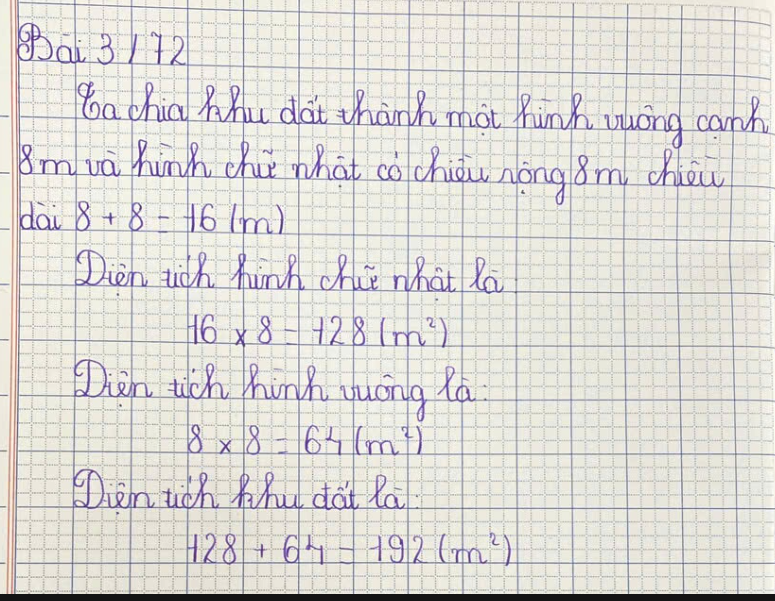 Bài 3 / 72
Ta chia khu đất thành một hình vuông cạnh
8m và hình chữ nhật có chiều rộng 8m, chiều
dài 8 + 8 = 16 (m)
Diện tích hình chữ nhật là
16 x 8 = 128 (m²)
Diện tích hình vuông là:
8 x 8 = 64 (m²)
Diện tích khu đất là:
128 + 64 = 192 (m²)